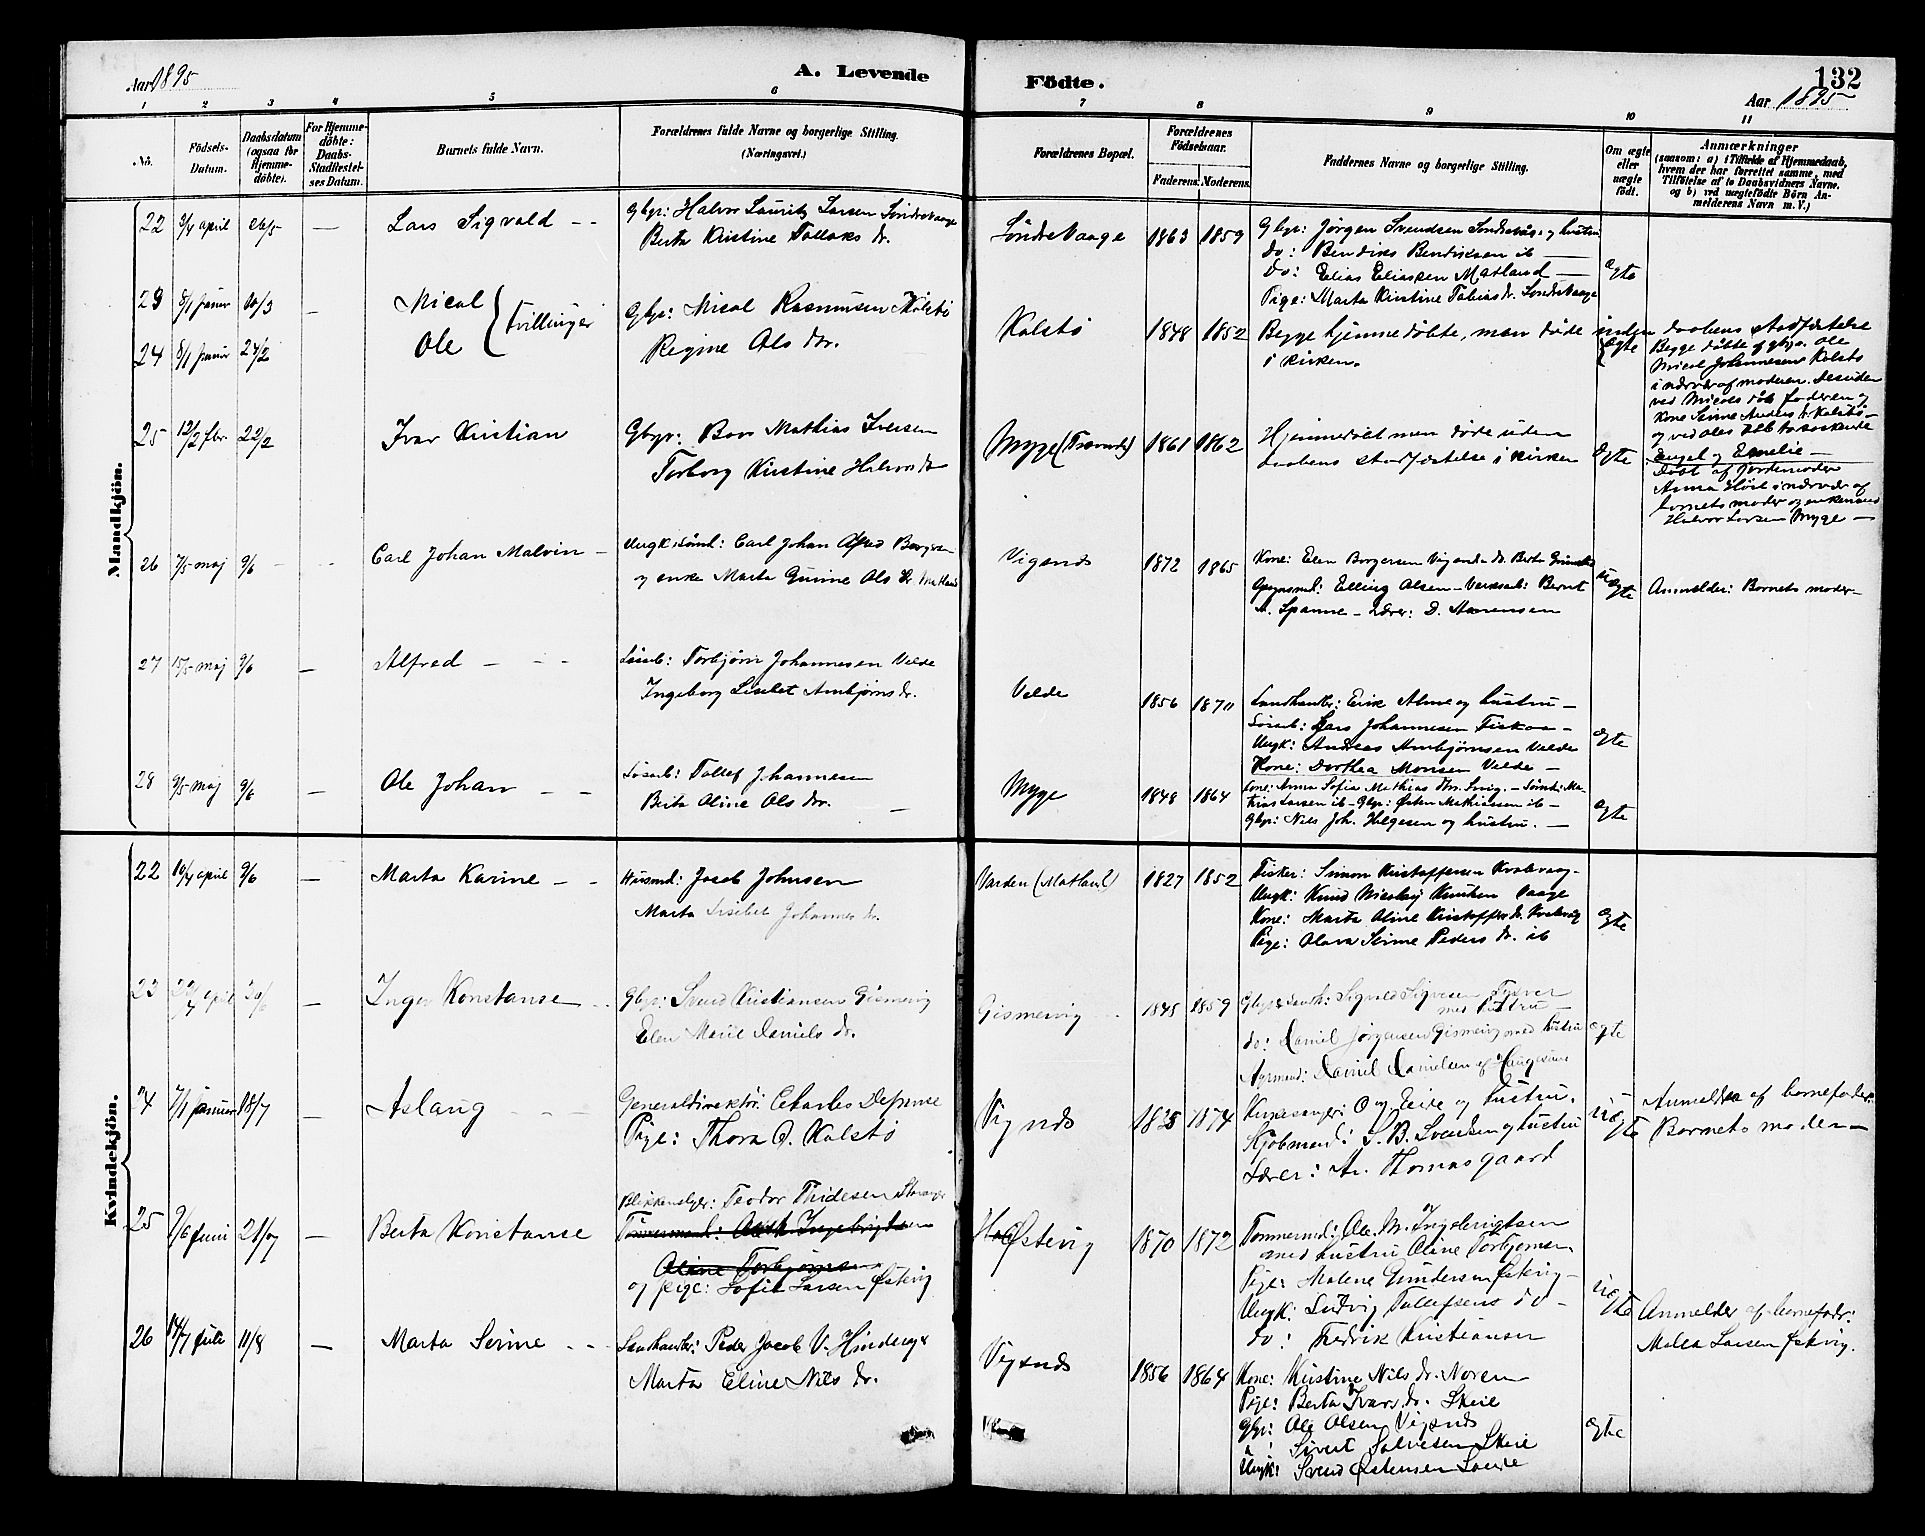 Aar 1895
A. Levende
Födte.
132
Aar 1895
1 2 3 4 5 6 7 8 9 10 11
No.
Födsels-Datum.
Daabsdatum (ogsaa for Hjemme-döbte).
For Hjemme-döbte: Daabs-Stadfæstel-ses Datum.
Barnets fulde Navn.
Forældrenes fulde Navne og borgerlige Stilling.
(Næringsvei.)
Forældrenes Bopæl.
Forældrenes Födselsaar.
Faderens. Moderens.
Faddernes Navne og borgerlige Stilling.
Om ægte eller uægte födt.
Anmærkninger
(saasom: a) i Tilfælde af Hjemmedaab,
hvem der har forrettet samme, med
Tilföielse af to Daabsvidners Navne,
og b) ved uægtefödte Börn An-
melderens Navn m. V.)
Mandkjön.
22 9/4 april 26/5 — Lars Sigvald - -
Gbgr: Halvor Laurits Larsen SöndreVaage
Berta Kristine Tollaks dr.
SöndreVaage 1863 1859
Gbgr: Jørgen Svendsen Söndrevåg og hustru
do: Bendiks Bendiksen ib —
do: Elias Eliassen Matland —
Pige: Marta Kristine Tobias dr. SöndreVaage
ægte
23 8/1 januar 10/3 — Mical
24 8/1 januar 24/2 Ole
Tvillinger
Gbgr: Mical Rasmussen Kalstø
Regine Ols dr.
Kalstø 1848 1852
Begge hjemmedøbte, men døde inden daabens stadfæstelse
i kirken.
ægte
Begge døbte af gbgr. Ole
Mical Johannesen Kalstø
i nærvær af moderen. Desuden
ved Micals dåb faderen og
kone Serine Anders dr. Kalstø -
og ved Oles dåb to søskende
Engel og Emelie —
25 12/2 fbr. 22/2
Ivar Kristian
Gbgr: Boas Mathias Iversen
Torborg Kirstine Halvors dr
Myge 1861 1862
Hjemmedøbt men døde uden
daabens stadfæstelse i kirken
Ægte
Døbt af Jordemoder
Anna Höie i nærvær af
barnets moder og enkemand
Halvor Larsen Myge —
26 7/5 maj 9/6 - --
Carl Johan Malvin -
Ungk. : Carl Johan Alfred
og enke Marta Gurine Ols dr. Matland
Vigsnes 1872 1865
Kone: Elen Borgersen Vigsnes do. Berta
Opsynsmd: Elling Olsen - Verksarb: Bernt
A. Spanne - Lærer: D. Aanensen
uægte
Anmelder: Barnets moder -
27 15/5 maj 9/6 — Alfred - - -
Løsarb: Torbjørn Johannesen Velde
Ingeborg Lisebet Arnbjørns dr.
Velde 1856 1870
Landhandler: Erik Alme og hustru -
Løsarb: Lars Johannesen Fiskaa -
Ungk: Andreas Arnbjørnsen Velde
Kone: Dorthea Monsen Velde -
ægte
28 9/5 maj 9/6 — Ole Johan - -
Løsarb: Tollef Johannesen
Berta Aline Ols dr. —
Myge 1848 1864
Kone: Anna Sofia Mathias dtr. - : Ma-
thias Larsen ib - Gbgr: Østen Mathiassen ib -
Gbgr: Nils Joh. Helgesen og hustru. -
ægte
Kvindekjön.
22 10/4 april 9/6 — Marta Karine - -
Husmd: Jacob Johnsen
Marta Lisebet Johannes dr.
Varden (Matland) 1827 1852
Fisker: Simon Kristoffersen Kvalevaag -
Ungk: Knud Nicolay Knutsen Vaage
Kone: Marta Aline Kristoffers dr. Kvalevåg
Pige: Olava Serine Peders dr. ib
ægte
23 april — Inger Konstanse - -
Gbgr: Svend Kristiansen Gismervig
Elen Marie Daniels dr.
Gismervig - - 1848 1859
Sigvald Sigvesen
med hustru -
do: Daniel Jørgensen Gismervig med hustru
: Daniel Danielsen af Haugesund
ægte
24 7/1 januar 18/7 — Aslaug - - -
Generaldirektør: Charles Defrance
Pige: Thora O. Kalstø
Vigsnes 1825 1874
Kirkesanger: O. Eide og hustru.
Kjøbmand: S. B. Svendsen og hustru
Lærer: A. Thomasgaard
uægte
Anmelder af barnefader:
Barnets moder -
25 9/6 juni 21/7 — Berta Konstanse
Blikkenslager: Teodor Tidesen Stavanger
Tømmermd: Ingebrigtsen
Aline Torbjørnsen
og pige: Sofie Larsen Østevig
Østevig 1870 1872
Tømmermd: Ole M. Ingebrigtsen
med hustru Aline Torbjørnsen.
Pige: Malene Gundersen Østevig -
Ungk: Ludvig Tollefsen do -
do: Fredrik Kristiansen
uægte
Anmelder af barnefadr:
Malea Larsen Østevig.
26 14/7 juli 11/8 — Marta Serine - -
Landhandler: Peder Jacob V. Hinderager
Marta Eline Nils dr.
Vigsnes 1856 1864
Kone: Kristine Nils dr. Noren
Pige: Berta Ivars dr. Skeie
Gbgr: Ole Olsen Vigsnes
" : Sivert Salvesen Skeie
Ungk: Svend Østensen
ægte